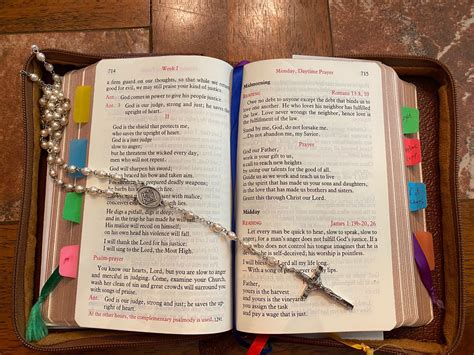 714 Week I
a firm guard on our thoughts, so that while we
feel for evil, we may still praise your kind of justice.
Ant. God comes in power to give his people justice.
Ant. 3 God is our judge, strong and just; he saves the
upright of heart.
II
God is the shield that protects me,
who saves the upright of heart.
God is a just judge
slow to anger;
but he threatens the wicked every day,
men who will not repent.
God will sharpen his sword;
braced his bow and taken aim.
prepared deadly weapons;
He digs a pitfall, digs it deep;
His malice will recoil on himself;
on his own head his violence will fall.
I will thank the Lord for his justice:
I will sing to the Lord, the Most High.
Psalm-prayer
You know our hearts, Lord, but you are slow to anger
and merciful in judgment. Come, examine your Church,
wash her clean of sin and great crowds will surround you
with songs of praise.
Ant. God is our judge, strong and just; he saves the up-
right of heart.
At the other hours, the complementary psalmody is used, 1291
Monday, Daytime Prayer 715
Midmorning
READING Romans 13:8, 10
Owe no debt to anyone except the debt that binds us to
love one another. He who loves his neighbor has fulfilled
the law. Love never wrongs the neighbor, hence love is
the fulfillment of the law.
Stand by me, God, do not forsake me.
— Do not abandon me, my Savior.
Prayer
God our Father,
work is your gift to us,
a call to reach new heights
by using our talents for the good of all.
Guide us as we work and teach us to live
in the spirit that has made us your sons and daughters,
in the love that has made us brothers and sisters.
Grant this through Christ our Lord.
Midday
READING James 1:19b-20, 26
Let every man be quick to hear, slow to speak, slow to
anger; for a man's anger does not fulfill God's justice. If a
man who does not control his tongue imagines that he is
devout,
I will bless the Lord all my life long.
— With a song of praise
Father,
yours is the harvest
and yours is the vineyard:
you assign the task
and pay a wage that is just.